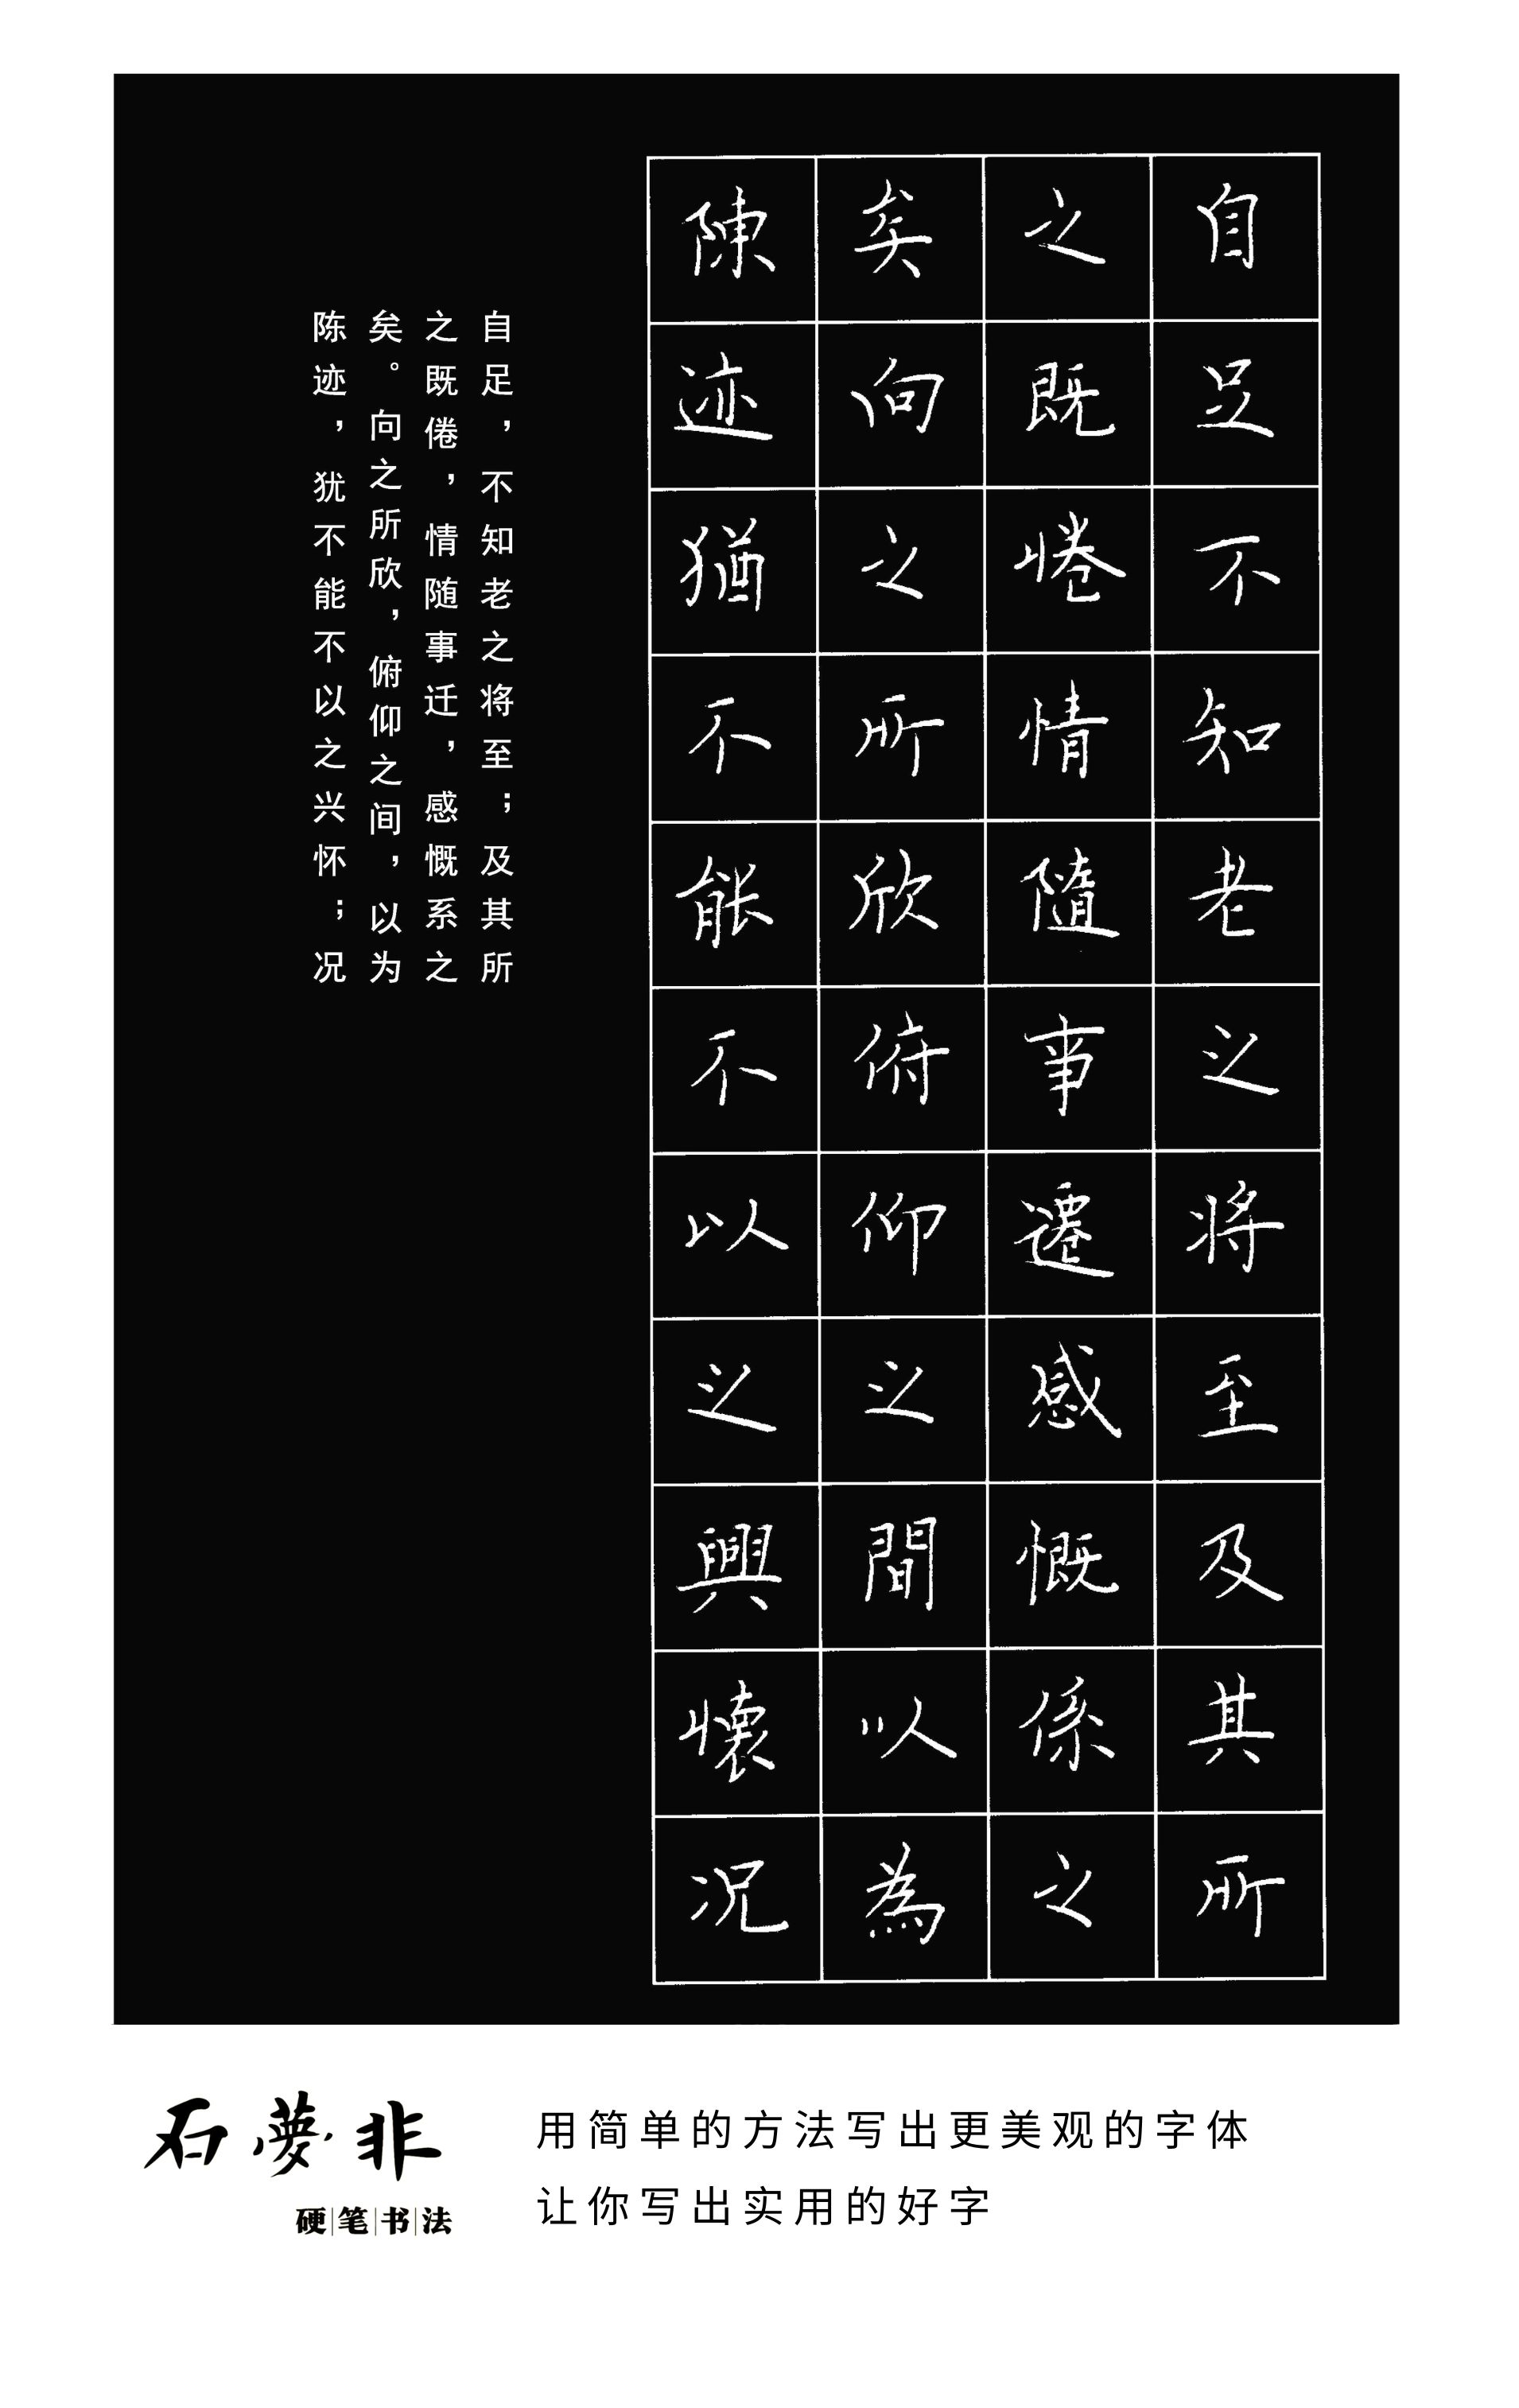 自足不知老之将至及其所
之既惓情隨事遷感慨係之
矣向之所欣俯仰之間以為
陳迹猶不能不以之興懷况
自足，不知老之将至；及其所
之既倦，情随事迁，感慨系之
矣。向之所欣，俯仰之间，以为
陈迹，犹不能不以之兴怀；况
石夢非
硬笔书法
用简单的方法写出更美观的字体
让你写出实用的好字